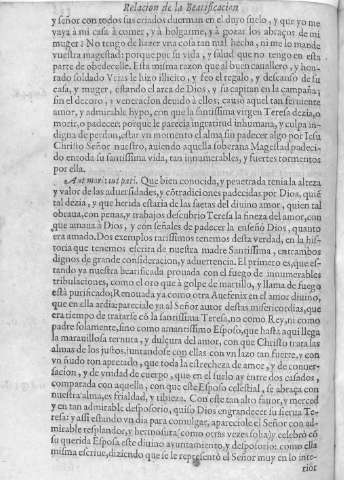 Relacion de la Beatificacion
y señor con todos sus criados duerman en el duyo suelo, y que yo me
vaya à mi casa à comer, y à holgarme, y à gozar los abraços de mi
muger? No tengo de hazer vna cosa tan mal hecha, ni me lo mande
vuestra magestad: porque por su vida, y salud que no tengo en esta
parte de obedecelle. Esta misma razon que al buen cauallero, y hon-
rado soldado Vrias le hizo illicito, y feo el regalo, y descanso de su
casa, y muger, estando el arca de Dios, y su capitan en la campaña;
sin el decoro, y veneracion deuido à ellos; causo aquel tan feruiente
amor, y admirable hypo, con que la santissima virgen Teresa dezia, o
morir, o padecer: porque le parecia ingratitud inhumana, y culpa in-
digna de perdon, estar vn momento el alma sin padecer algo por Iesu
Christo Señor nuestro, auiendo aquella soberana Magestad padeci-
do en toda su santissima vida, tan innumerables, y fuertes tormentos
por ella.
Aut mori aut pati. Que bien conocida, y penetrada tenia la alteza
y valor de las aduersidades, y cõtradiciones padecidas por Dios, quiẽ
tal dezia, y que herida estaria de las saetas del diuino amor, quien tal
obraua, con penas, y trabajos descubrio Teresa la fineza del amor, con
que amaua à Dios, y con señales de padecer la enseñò Dios, quanto
era amado. Dos exemplos rarissimos tenemos desta verdad, en la his-
toria que tenemos escrita de nuestra madre Santissima, entrambos
dignos de grande consideracion, y aduertencia. El primero es, que es-
tando ya nuestra beatificada prouada con el fuego de innumerables
tribulaciones, como el oro que à golpe de martillo, y llama de fuego
està purificado; Renouada ya como otra Auefenix en el amor diuino,
que en ella ardia; pareciale ya al Señor autor destas misericordias, que
era tiempo de tratarse cõ la santissima Teresa, no como Rey, ni como
padre solamente, sino como amantissimo Esposo, que hasta aqui llega
la marauillosa ternura, y dulçura del amor, con que Christo trata las
almas de los justos, juntandose con ellas con vn lazo tan fuerte, y con
vn ñudo ton apretado, que toda la estrecheza de amor, y de conuer-
sacion, y de vnidad de cuerpo, que en el suelo ay entre dos casados,
comparada con aquella, con que este Esposo celestial, se abraça con
nuestra alma, es frialdad, y tibieza. Con este tan alto fauor, y merced
y en tan admirable desposorio, quiso Dios engrandecer su sierua Te-
resa: y assi estando vn dia para comulgar, apareciole el Señor con ad-
mirable resplandor, y hermosura (como otras vezes solia) y celebrò cõ
su querida Esposa este diuino ayuntamiento y desposorio: como ella
misma escriue, diziendo que se le representò el Señor muy en lo inte-
rior